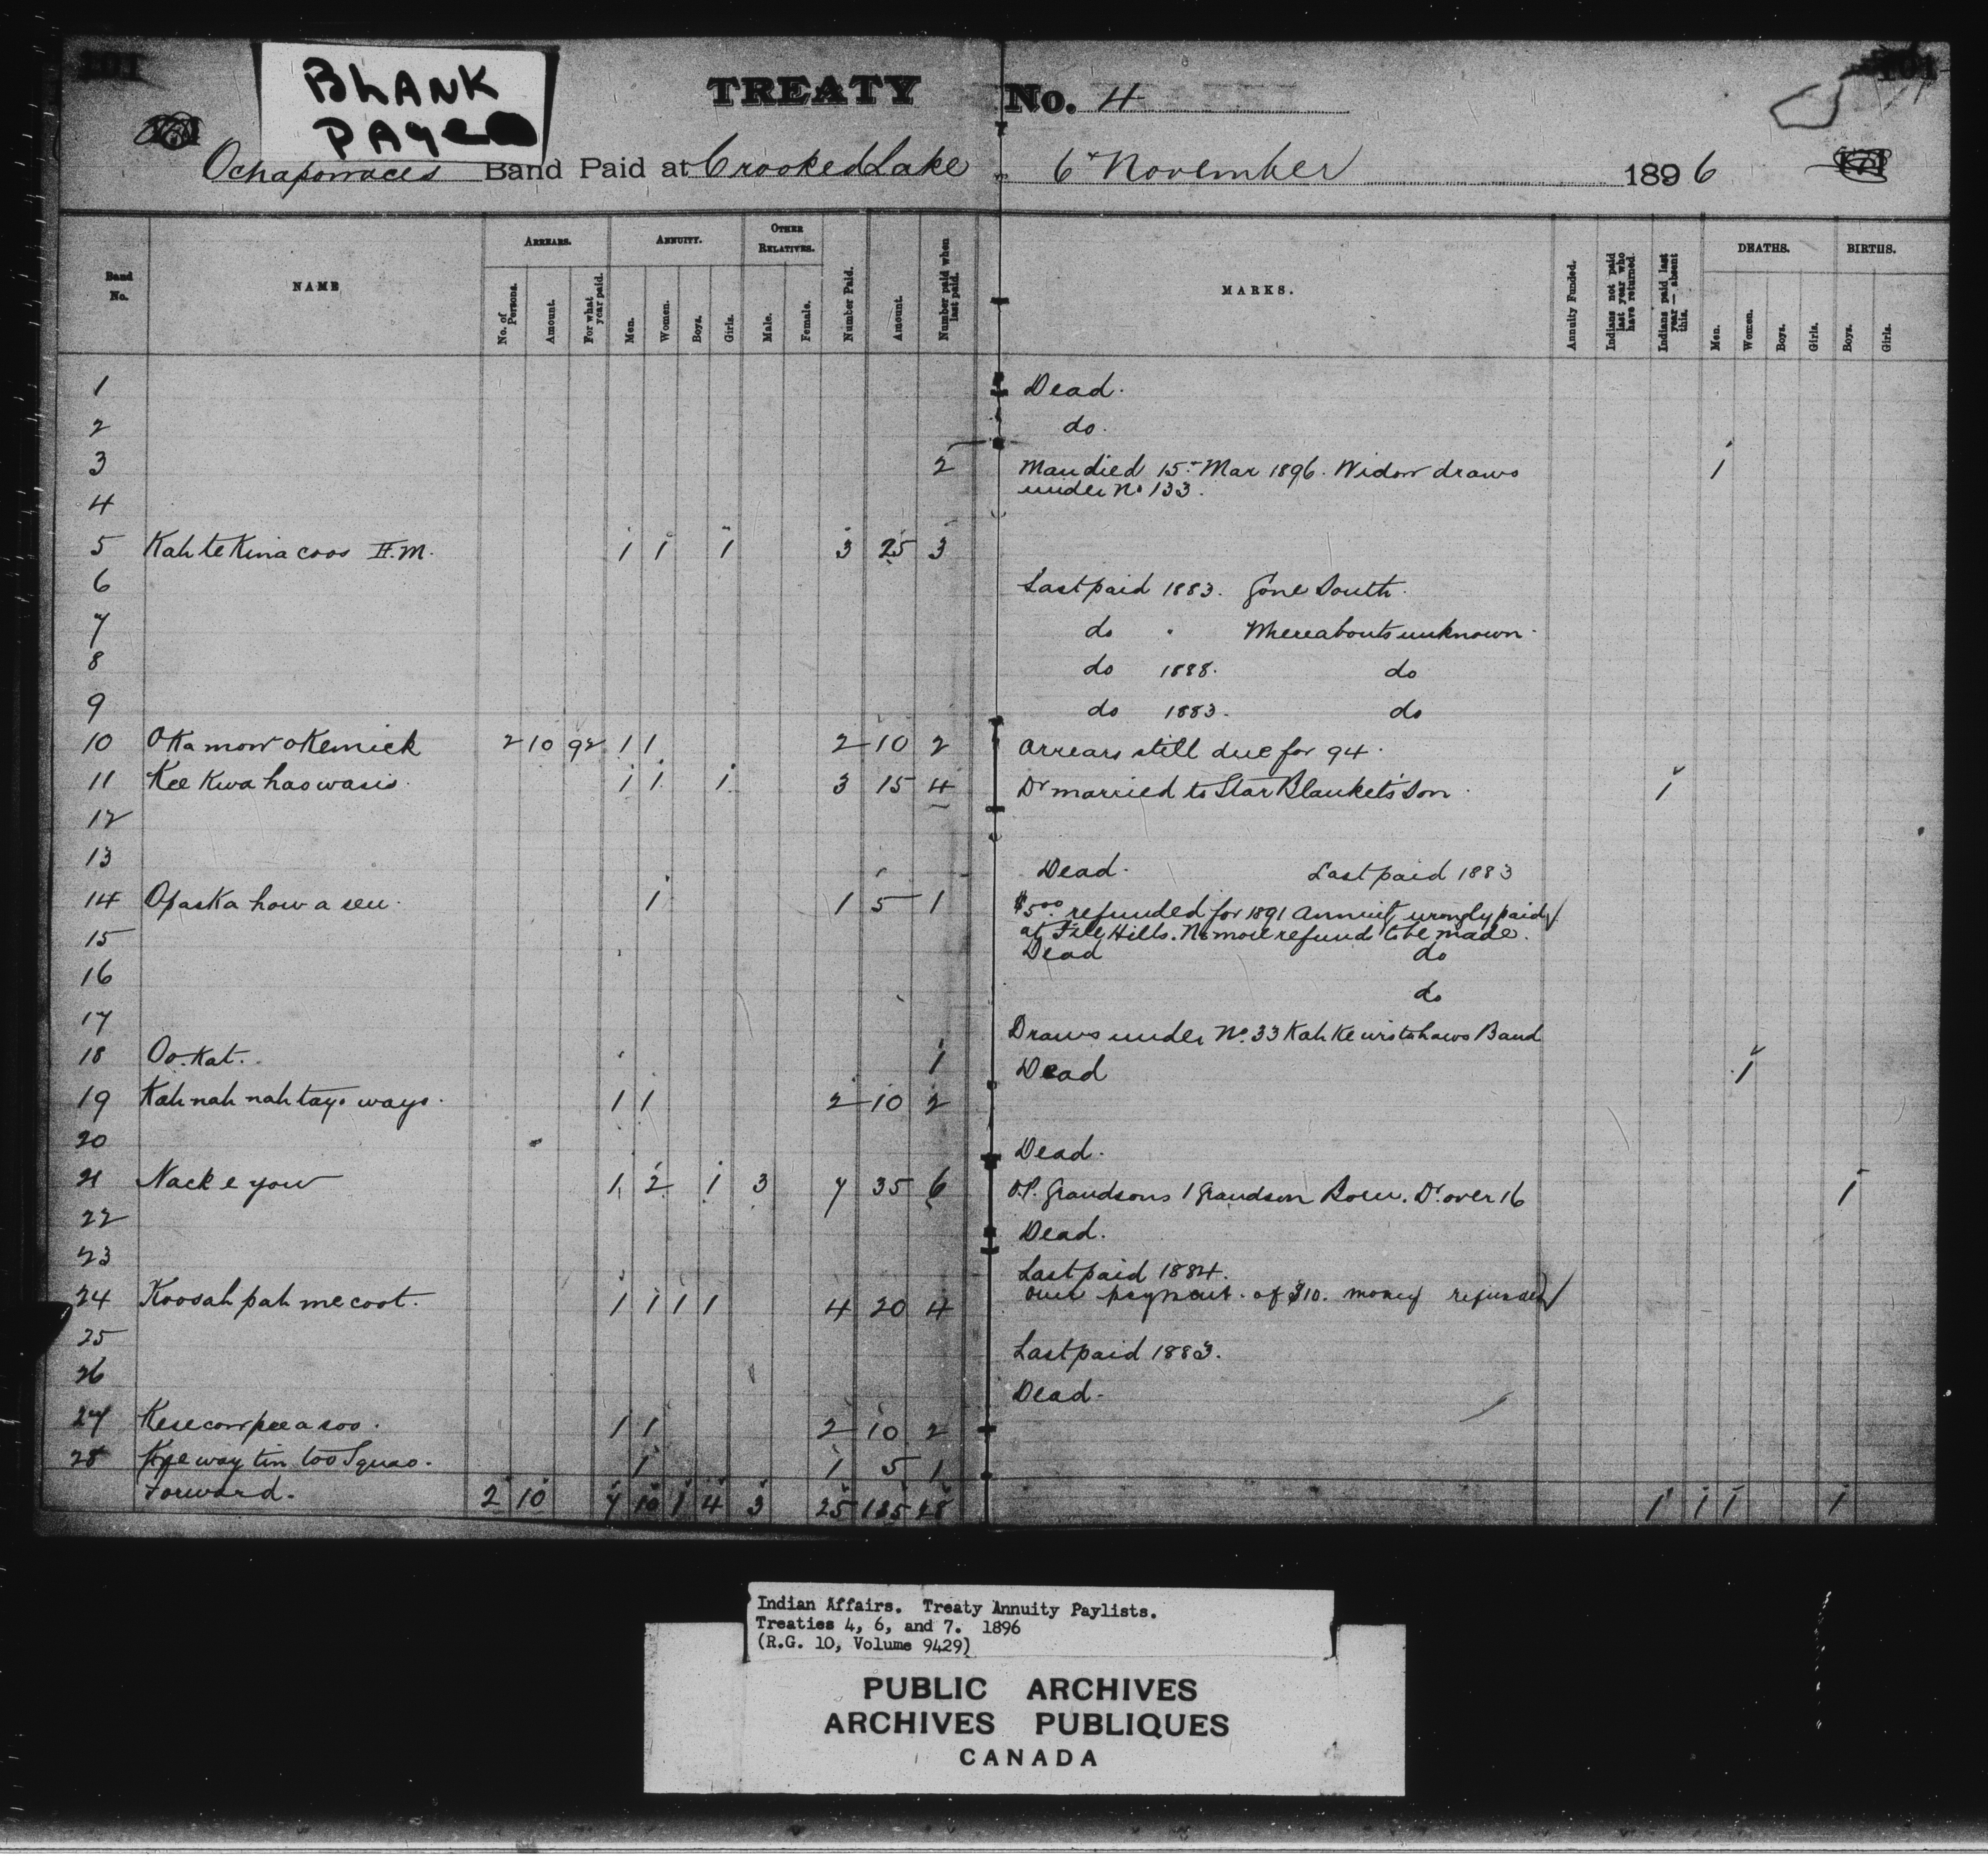 101
BLANK
PAGE
TREATY No. 4
101
Ochapowaces Band Paid at Crooked Lake 6" November 1896
Band No. NAME ARREARS. No. of Persons. Amount. For what year paid. ANNUITY. Men. Women. Boys. Girls. OTHER RELATIVES. Male. Female. Number Paid. Amount. Number paid when last paid. MARKS. Annuity Funded. Indians not paid last year who have returned. Indians paid last year — absent this. DEATHS. Men. Women. Boys. Girls. BIRTHS. Boys. Girls.
1 Dead.
2 do.
3 2 Man died 15" Mar 1896. Widow draws 1
under No 133.
4
5 Kah te Kina coos H.M. 1 1 1 3 25 3
6 Last paid 1883. Gone South.
7 do " Whereabouts unknown.
8 do 1888. do
9 do 1883. do
10 Oka mow okemick 2 10 92 1 1 2 10 2 Arrears still due for 94.
11 Kee Kwa haowasis. 1 1 1 3 15 4 Dr married to Star Blanket's Son. 1
12
13 Dead. Last paid 1883
14 Opaska how a sew. 1 1 5 1 $5.00 refunded for 1891 Annuity wrongly paid
at File Hills. No more refund to be made.
15 Dead do
16 do
17 Draws under No. 33 Kah Ke wistahaws Band
18 Oo. Kat. 1 Dead 1
19 Kah nah nah tays ways. 1 1 2 10 2
20 Dead.
21 Nack e yow 1 2 1 3 7 35 6 O.P. Grandsons 1 Grandson Born. Dr over 16 1
22 Dead.
23 Last paid 1884.
24 Koosah pah me coot. 1 1 1 1 4 20 4 over payment. of $10. money refunded
25 Last paid 1883.
26 Dead.
27 Kesecow pee a soo. 1 1 2 10 2
28 Kee way tin too Squao. 1 1 5 1
Forward. 2 10 7 10 1 4 3 25 135 28 1 1 1 1
Indian Affairs. Treaty Annuity Paylists.
Treaties 4, 6, and 7. 1896
(R.G. 10, Volume 9429)
PUBLIC ARCHIVES
ARCHIVES PUBLIQUES
CANADA